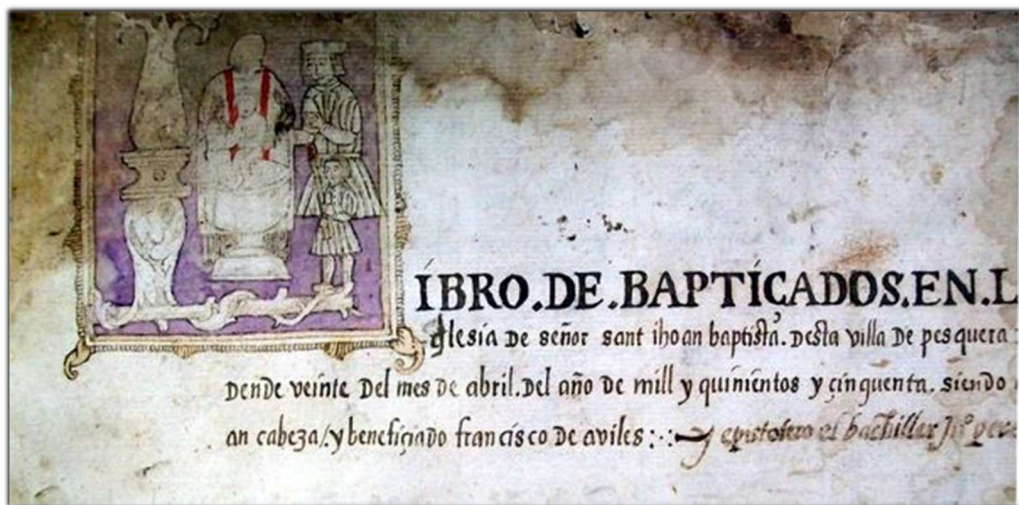 LIBRO.DE.BAPTIÇADOS.EN.L
yglesia de señor sant ihoan baptista. desta villa de pesquera
dende veinte del mes de abril. del año de mill y quinientos y çinquenta. siendo
an cabeza/. y benefiçiado francisco de aviles :·: y epistolero el bachiller Ju°